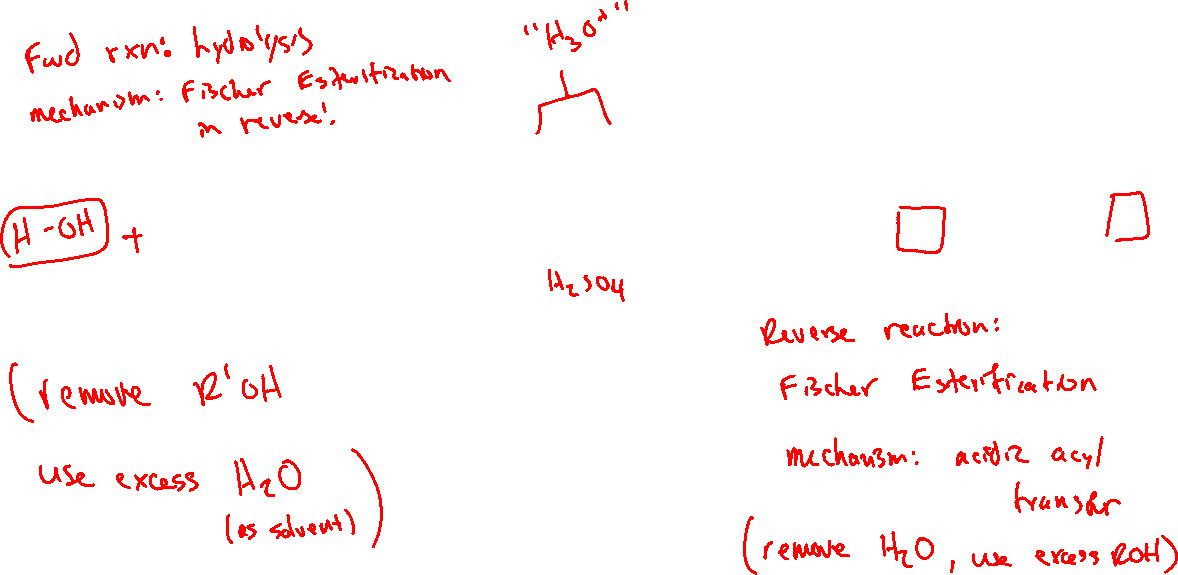 Fwd rxn: hydrolysis
mechanism: Fischer Esterification
in reverse!
"H3O+"
H-OH +
H2SO4
(remove R'OH
use excess H2O
(as solvent))
Reverse reaction:
Fischer Esterification
mechanism: acidic acyl
transfer
(remove H2O, use excess ROH)